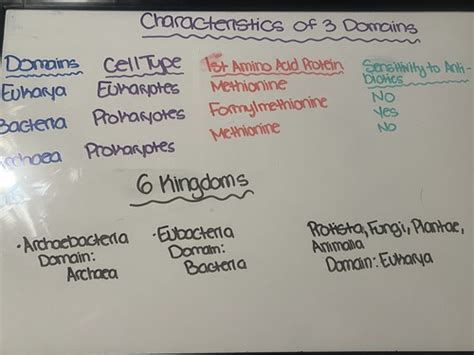 Characteristics of 3 Domains
Domains Cell Type 1st Amino Acid Protein Sensitivity to Anti-
biotics
Eukarya Eukaryotes Methionine No
Bacteria Prokaryotes Formylmethionine Yes
Archaea Prokaryotes Methionine No
6 Kingdoms
·Archaebacteria ·Eubacteria Protista, Fungi, Plantae,
Domain: Domain: Animalia
Archaea Bacteria Domain: Eukarya